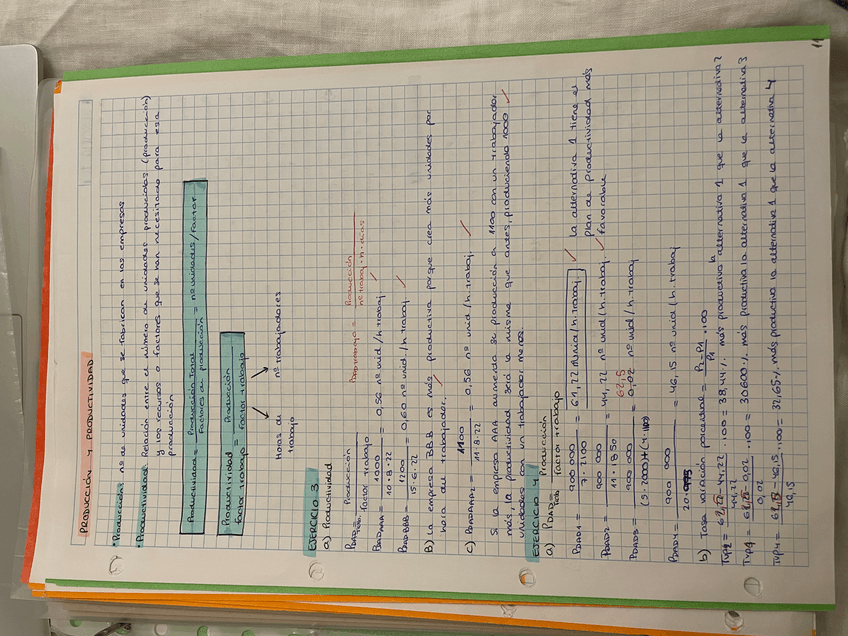 PRODUCCIÓN Y PRODUCTIVIDAD
• Producción: nº de unidades que se fabrican en las empresas.
• Productividad: Relación entre el número de unidades producidas (producción)
y los recursos o factores que se han necesitado para esa
producción
Productividad = Producción Total / Factores de producción = nº unidades / Factor
Productividad factor trabajo = Producción / Factor trabajo
Horas de trabajo
nº trabajadores
EJERCICIO 3
a) Productividad
Producción / Factor trabajo
Producción / nº trabaj. · h · días
PDADAAA = 1000 / 10·8·22 = 0,56 nº unid / h. trabaj.
PDADBBB = 1200 / 15·6·22 = 0,60 nº unid. / h. trabaj.
B) La empresa BBB es más productiva porque crea más unidades por
hora del trabajador.
c) 1100 / 11·8·22 = 0,56 nº unid / h. trabaj.
Si la empresa AAA aumenta su producción a 1100 con un trabajador
más, la productividad será la misma que antes, produciendo 1000
unidades un trabajador menos.
EJERCICIO 4
a) PDAD = Producción / Factor trabajo
PDAD1 = 900 000 / 7·2100 = 61,22 / h. trabaj.
La alternativa 1 tiene el
plan de productividad más
favorable
PDAD2 = 900 000 / 11·1850 = 44,22 nº unid / h. trabaj.
PDAD3 = 900 000 = 0,02 nº unid / h. trabaj
62,5
PDAD4 = 900 000 = 46,15 nº unid / h. trabaj
b) Tasa variación porcentual = ·100
·100 = 38,44% más productiva la alternativa 1 que la alternativa 2
44,22
·100 = 30600% más productiva la alternativa 1 que la alternativa 3
0,02
·100 = 32,65% más productiva la alternativa 1 que la alternativa 4
46,15